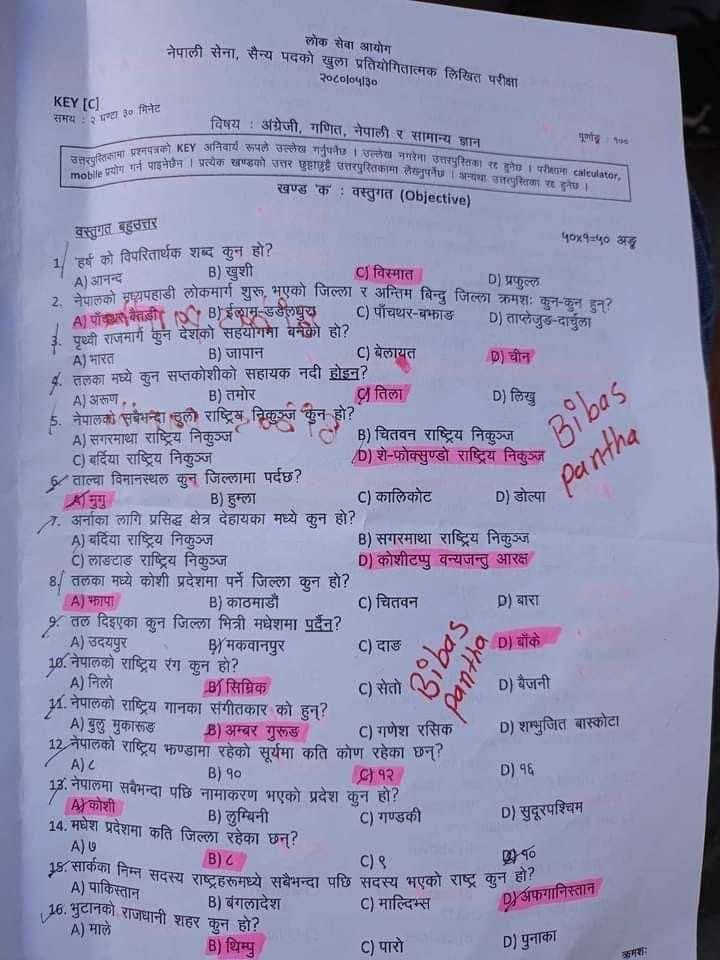 लोक सेवा आयोग
नेपाली सेना, सैन्य पदको खुला प्रतियोगितात्मक लिखित परीक्षा
२०८०।०५।३०
KEY [C]
समय : २ घण्टा ३० मिनेट
पूर्णाङ्क : १००
विषय : अंग्रेजी, गणित, नेपाली र सामान्य ज्ञान
उत्तरपुस्तिकामा प्रश्नपत्रको KEY अनिवार्य रूपले उल्लेख गर्नुपर्नेछ । उल्लेख नगरेमा उत्तरपुस्तिका रद्द हुनेछ । परीक्षामा calculator,
mobile प्रयोग गर्न पाइनेछैन । प्रत्येक खण्डको उत्तर छुट्टाछुट्टै उत्तरपुस्तिकामा लेख्नुपर्नेछ । अन्यथा उत्तरपुस्तिका रद्द हुनेछ ।
खण्ड 'क' : वस्तुगत (Objective)
वस्तुगत बहुउत्तर
५०x१=५० अङ्क
1. 'हर्ष' को विपरितार्थक शब्द कुन हो?
A) आनन्द B) खुशी C) विस्मात D) प्रफुल्ल
2. नेपालको मध्यपहाडी लोकमार्ग शुरू भएको जिल्ला र अन्तिम बिन्दु जिल्ला क्रमशः कुन-कुन हुन्?
A) पाँचथर-बैतडी B) ईलाम-डडेलधुरा C) पाँचथर-बझाङ D) ताप्लेजुङ-दार्चुला
3. पृथ्वी राजमार्ग कुन देशको सहयोगमा बनेको हो?
A) भारत B) जापान C) बेलायत D) चीन
4. तलका मध्ये कुन सप्तकोशीको सहायक नदी होइन?
A) अरूण B) तमोर C) तिला D) लिखु
5. नेपालको सबैभन्दा ठुलो राष्ट्रिय निकुञ्ज कुन हो?
A) सगरमाथा राष्ट्रिय निकुञ्ज B) चितवन राष्ट्रिय निकुञ्ज
C) बर्दिया राष्ट्रिय निकुञ्ज D) शे-फोक्सुण्डो राष्ट्रिय निकुञ्ज
Bibas
pantha
6. ताल्चा विमानस्थल कुन जिल्लामा पर्दछ?
A) मुगु B) हुम्ला C) कालिकोट D) डोल्पा
7. अर्नाका लागि प्रसिद्ध क्षेत्र देहायका मध्ये कुन हो?
A) बर्दिया राष्ट्रिय निकुञ्ज B) सगरमाथा राष्ट्रिय निकुञ्ज
C) लाङटाङ राष्ट्रिय निकुञ्ज D) कोशीटप्पु वन्यजन्तु आरक्ष
8. तलका मध्ये कोशी प्रदेशमा पर्ने जिल्ला कुन हो?
A) झापा B) काठमाडौं C) चितवन D) बारा
9. तल दिइएका कुन जिल्ला भित्री मधेशमा पर्दैन?
A) उदयपुर B) मकवानपुर C) दाङ D) बाँके
Bibas
pantha
10. नेपालको राष्ट्रिय रंग कुन हो?
A) निलो B) सिम्रिक C) सेतो D) बैजनी
11. नेपालको राष्ट्रिय गानका संगीतकार को हुन्?
A) बुलु मुकारूङ B) अम्बर गुरूङ C) गणेश रसिक D) शम्भुजित बास्कोटा
12. नेपालको राष्ट्रिय झण्डामा रहेको सूर्यमा कति कोण रहेका छन्?
A) ८ B) १० C) १२ D) १६
13. नेपालमा सबैभन्दा पछि नामाकरण भएको प्रदेश कुन हो?
A) कोशी B) लुम्बिनी C) गण्डकी D) सुदूरपश्चिम
14. मधेश प्रदेशमा कति जिल्ला रहेका छन्?
A) ७ B) ८ C) ९ D) १०
15. सार्कका निम्न सदस्य राष्ट्रहरूमध्ये सबैभन्दा पछि सदस्य भएको राष्ट्र कुन हो?
A) पाकिस्तान B) बंगलादेश C) माल्दिभ्स D) अफगानिस्तान
16. भुटानको राजधानी शहर कुन हो?
A) माले B) थिम्पु C) पारो D) पुनाका
क्रमशः